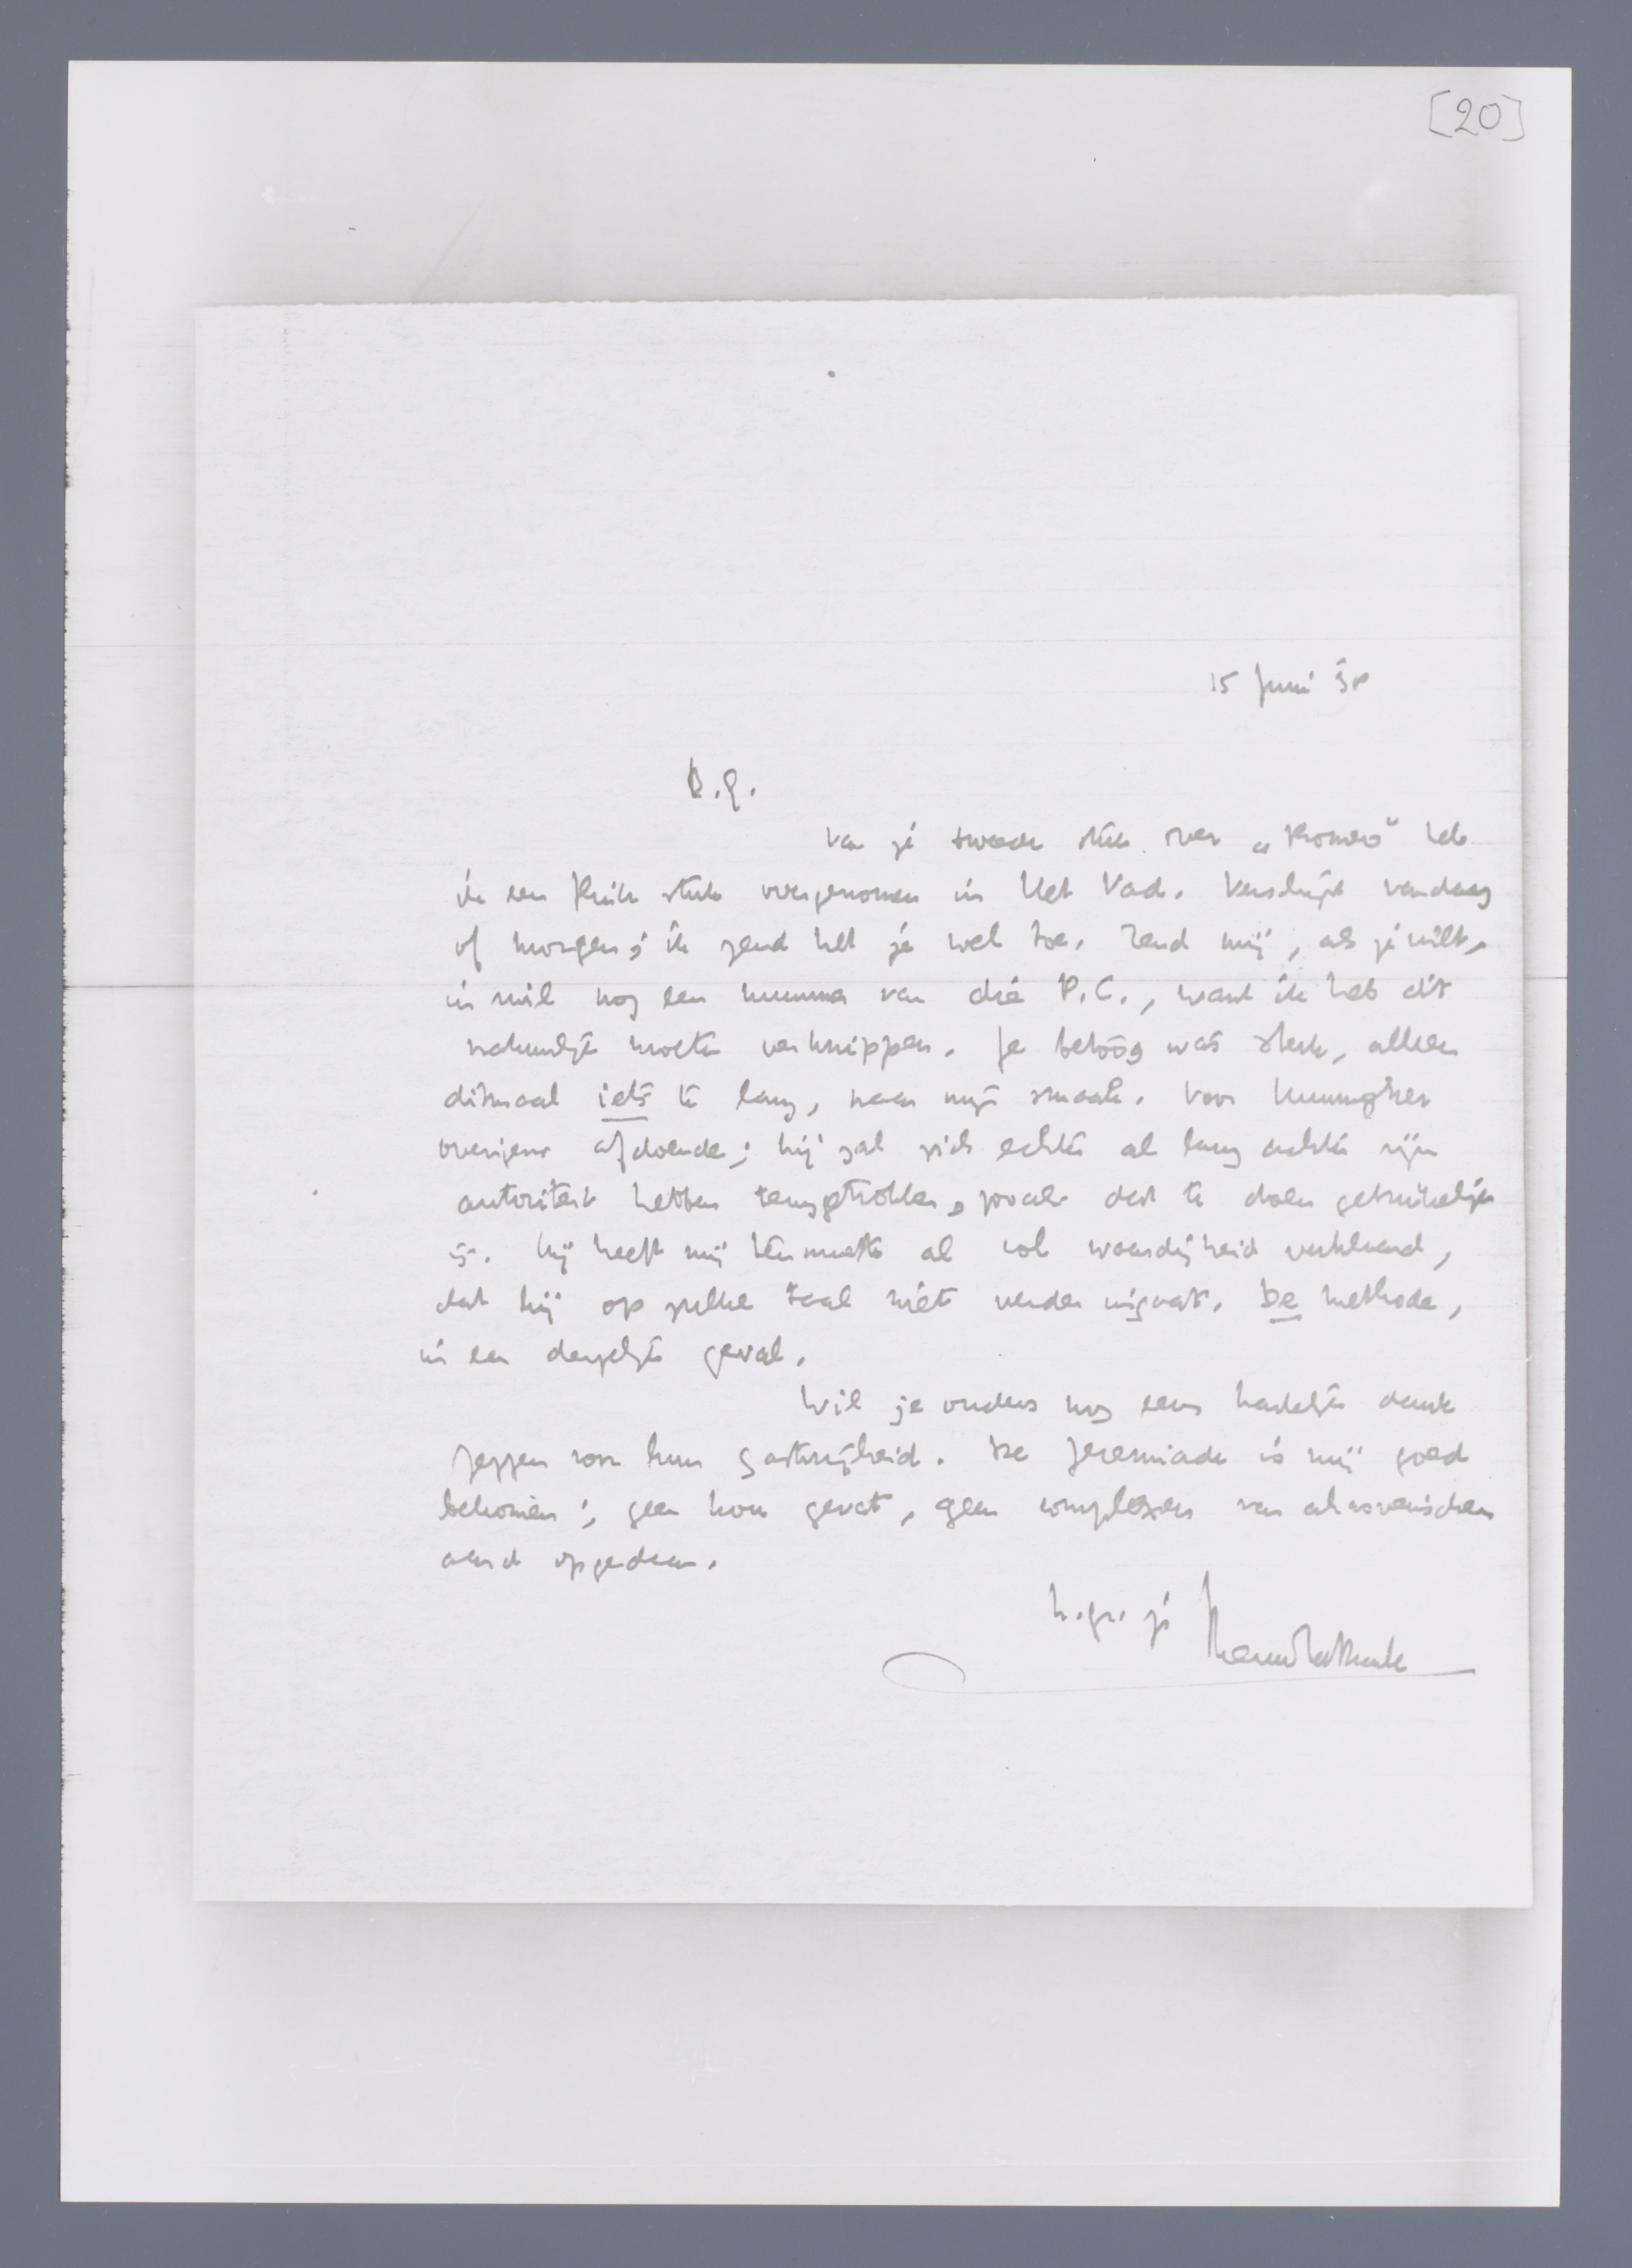 [20]
15 Juni
B.G.
Van je tweede stuk over „Romeo" heb
ik een flink stuk overgenomen in Het Vad. Verschijnt vandaag
of morgen; ik zend het je wel toe. Zend mij, als je wilt,
in ruil nog een nummer van die P.C., want ik heb dit
natuurlijk moeten verknippen. Je betoog was sterk, alleen
ditmaal iets te lang, naar mijn smaak. Voor
overigens afdoende; hij zal zich echter al lang achter zijn
autoriteit hebben teruggetrokken, zooals dat te doen gebruikelijk
is. Hij heeft mij tenminste al vol waardigheid verklaard,
dat hij op zulke taal niet verder ingaat. De methode,
in een dergelijk geval.
Wil je ouders nog eens hartelijk dank
zeggen voor hun gastvrijheid. De Jeremiade is mij goed
bekomen; geen kou gevat, geen complexen van ahasverischen
aard opgedaan.
h.gr. je Menno ter Braak